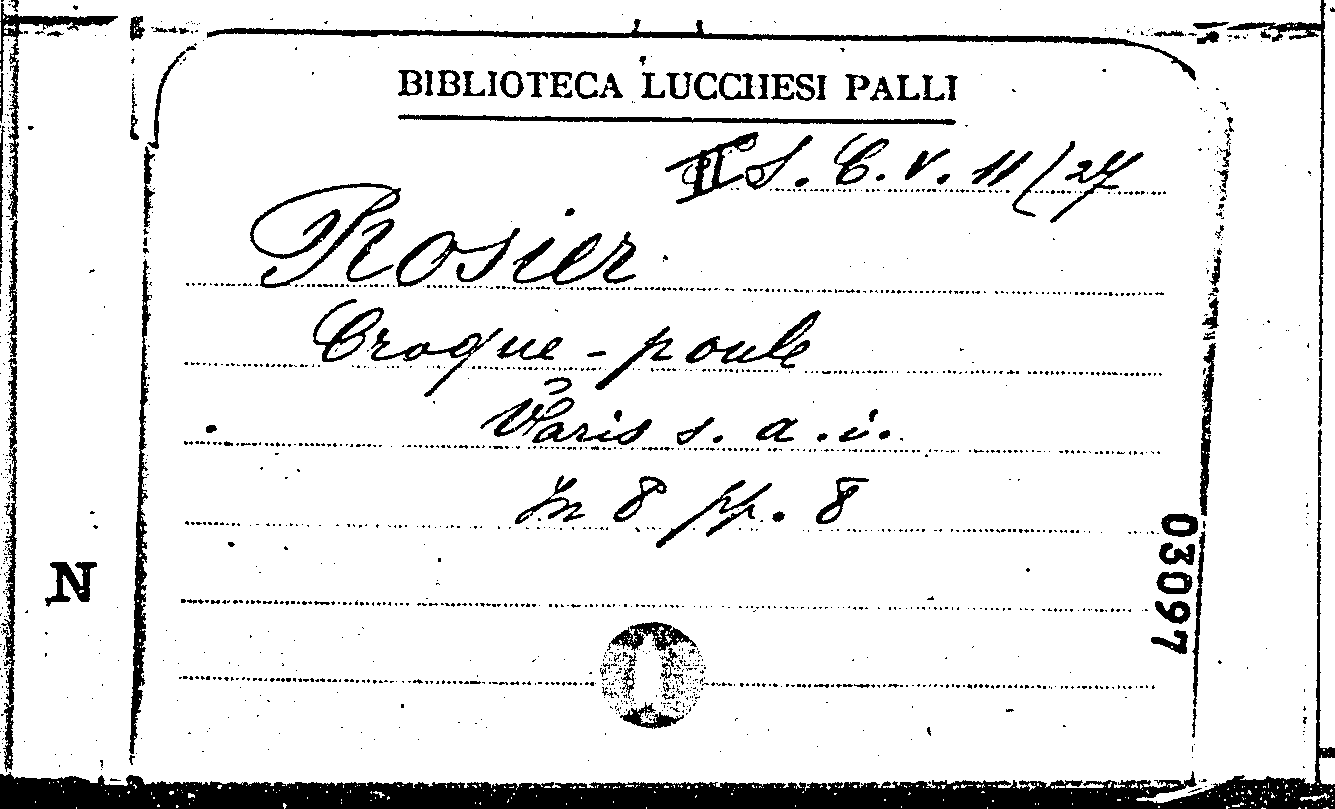 BIBLIOTECA LUCCHESI PALLI
II S. C. V. 11/27
Rosier
Croque-poule
Paris s. a. i.
In 8 pp. 8
N
03097